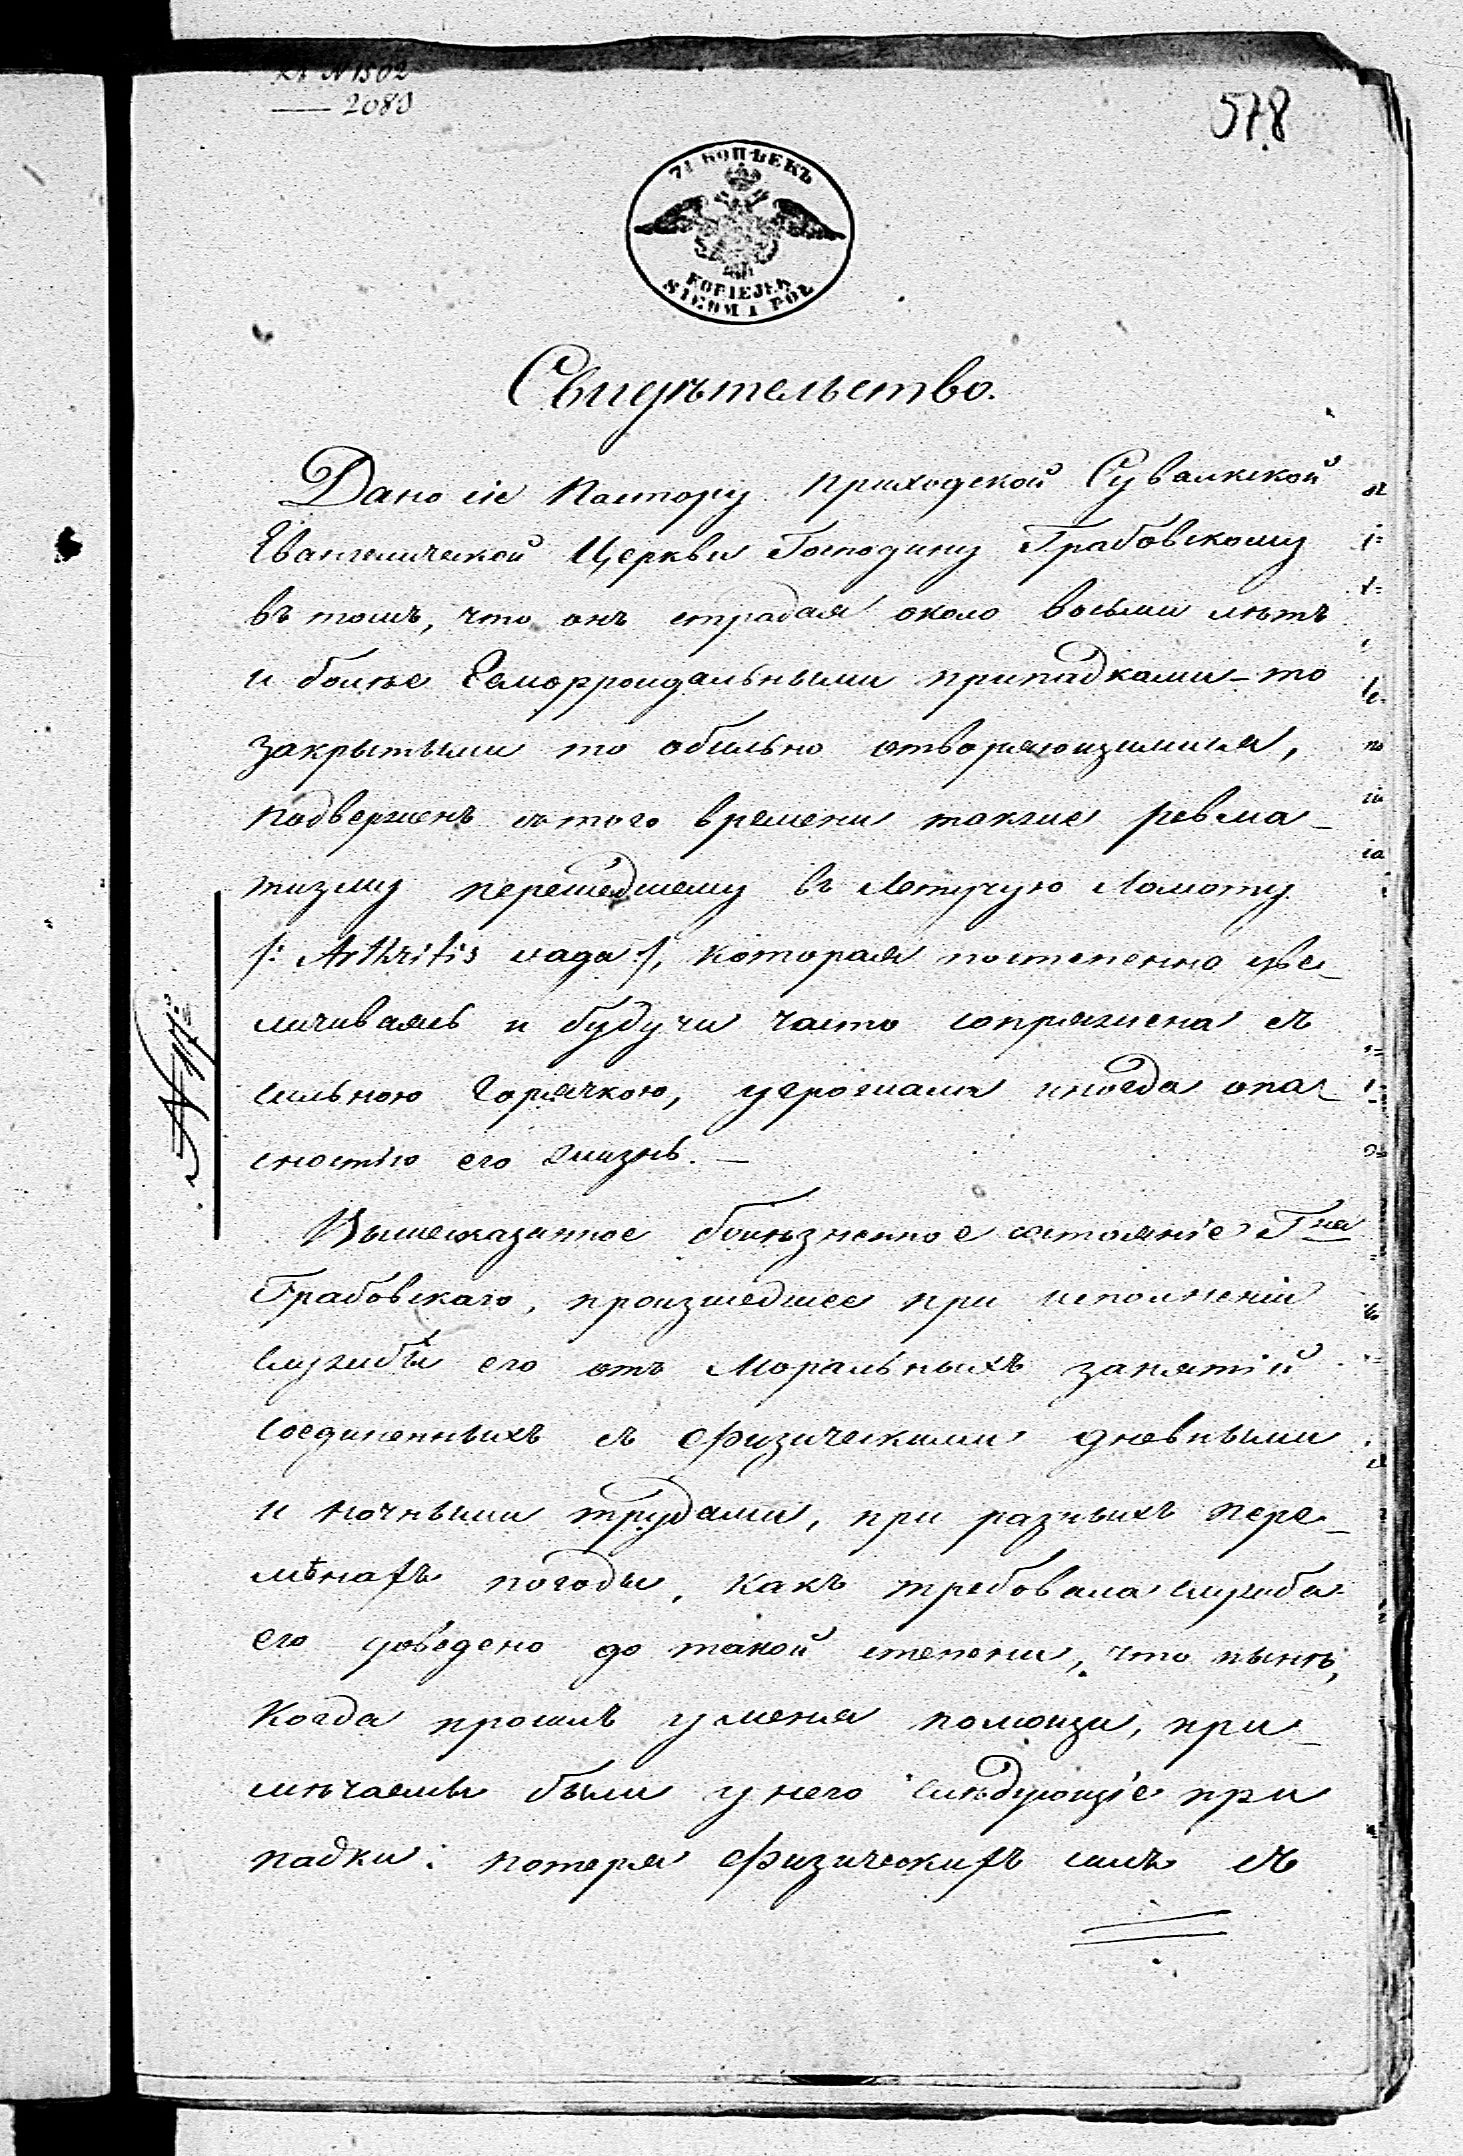 № 1502
2080
578
7½ КОПѢЕКЪ
KOPIEJEK
SIEDM I PÓŁ
Свидѣтельство.
Дано сіе Пастору приходской Сувалкской
Евангелической Церкви Господину Грабовскому
въ томъ, что онъ страдая около восьми лѣтъ
и болѣе Геморроидальными припадками то
закрытыми то обильно отворяющимися,
подверженъ съ того времени также ревма-
тизму перешедшему въ Летучую Ломоту
/: Arthritis vaga :/, которая постепенно уве-
личиваясь и будучи часто сопряжена съ
сильною Горячкою, угрожала иногда опа-
сностію его жизнь. —
Вышесказанное болѣзненное состояніе Гна
Грабовскаго, произшедшее при исполненіи
службы его отъ Моральныхъ занятій
соединенныхъ съ физическими дневными
и ночными трудами, при разныхъ пере-
мѣнахъ погоды, какъ требовала служба
его доведено до такой степени, что нынѣ,
когда просилъ у меня помощи, при-
мѣчаемы были у него слѣдующіе при
падки: потеря физическихъ силъ съ